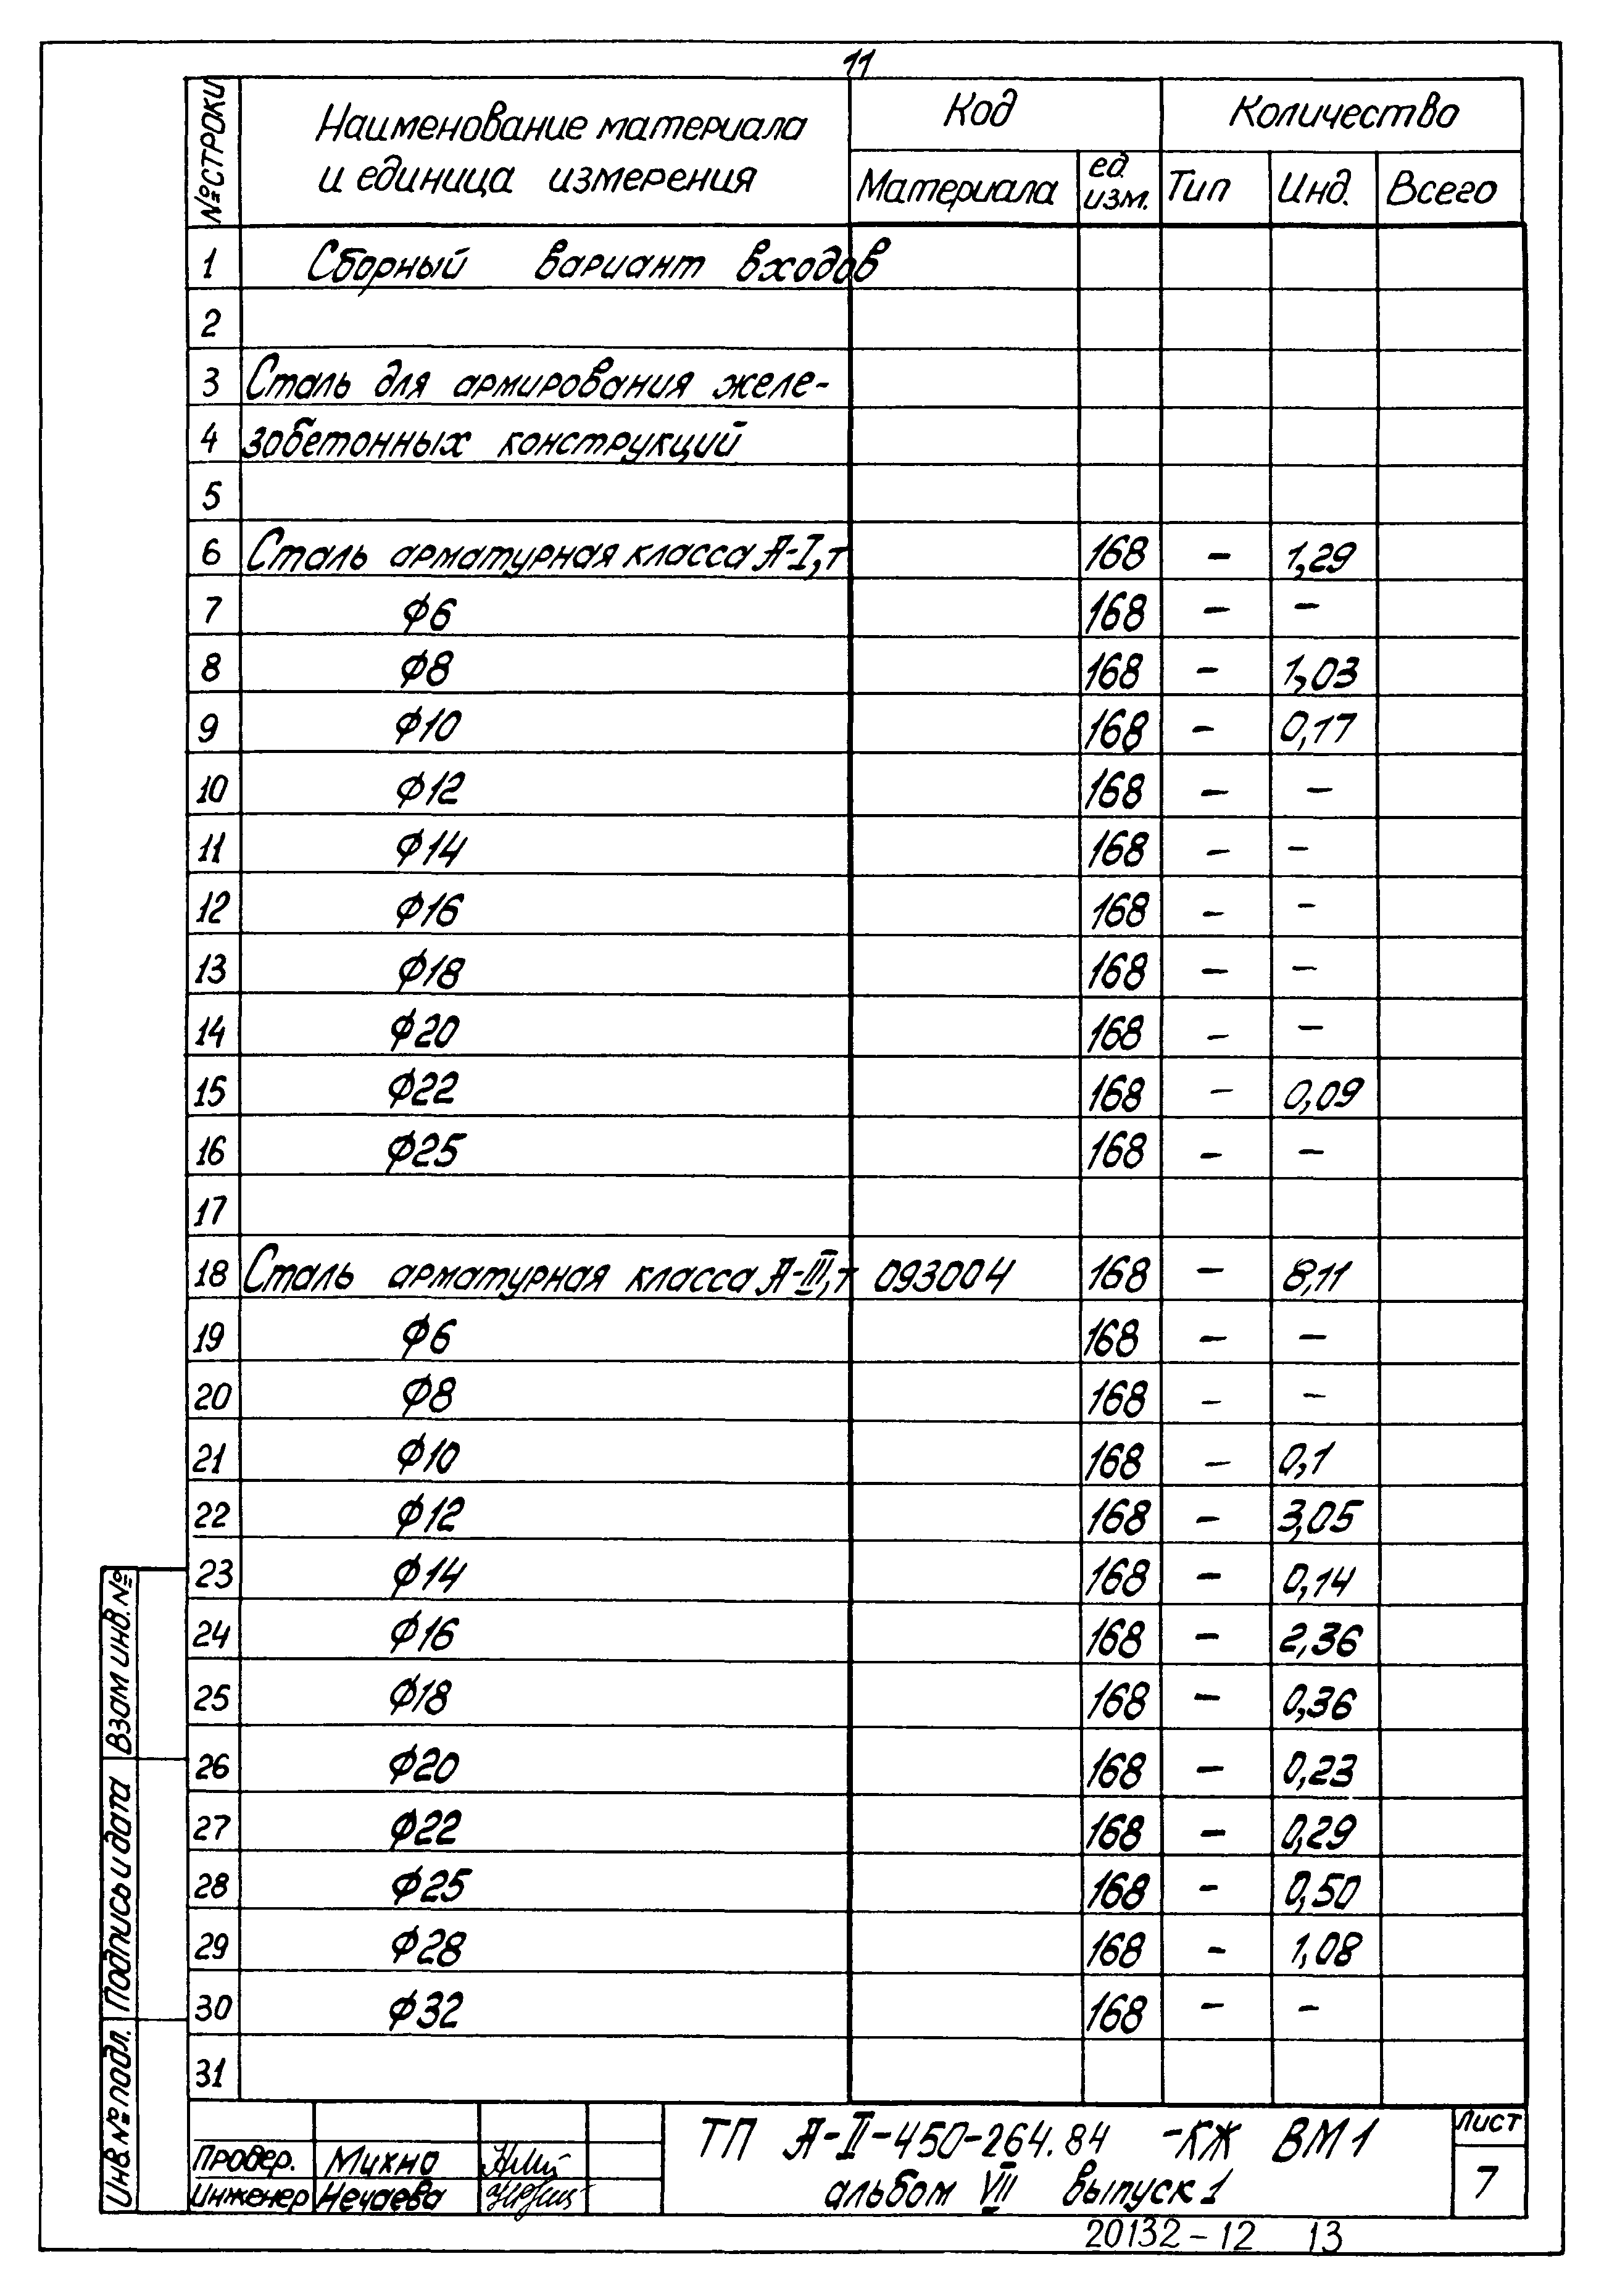 11
№ СТРОКИ
Наименование материала
и единица измерения
Код
Количество
Материала
ед
изм.
Тип
Инд.
Всего
1 Сборный вариант входов
2
3 Сталь для армирования желе-
4 зобетонных конструкций
5
6 Сталь арматурная класса А-I,т 168 – 1,29
7 ф6 168 – –
8 ф8 168 – 1,03
9 ф10 168 – 0,17
10 ф12 168 – –
11 ф14 168 – –
12 ф16 168 – –
13 ф18 168 – –
14 ф20 168 – –
15 ф22 168 – 0,09
16 ф25 168 – –
17
18 Сталь арматурная класса А-III,т 093004 168 – 8,11
19 ф6 168 – –
20 ф8 168 – –
21 ф10 168 – 0,1
22 ф12 168 – 3,05
23 ф14 168 – 0,14
24 ф16 168 – 2,36
25 ф18 168 – 0,36
26 ф20 168 – 0,23
27 ф22 168 – 0,29
28 ф25 168 – 0,50
29 ф28 168 – 1,08
30 ф32 168 – –
31
Взам инв. №
Подпись и дата
Инв. № подл.
Провер. Михно
Инженер Нечаева
ТП А-II-450-264.84 -КЖ ВМ1
альбом VII выпуск 1
Лист
7
20132-12 13